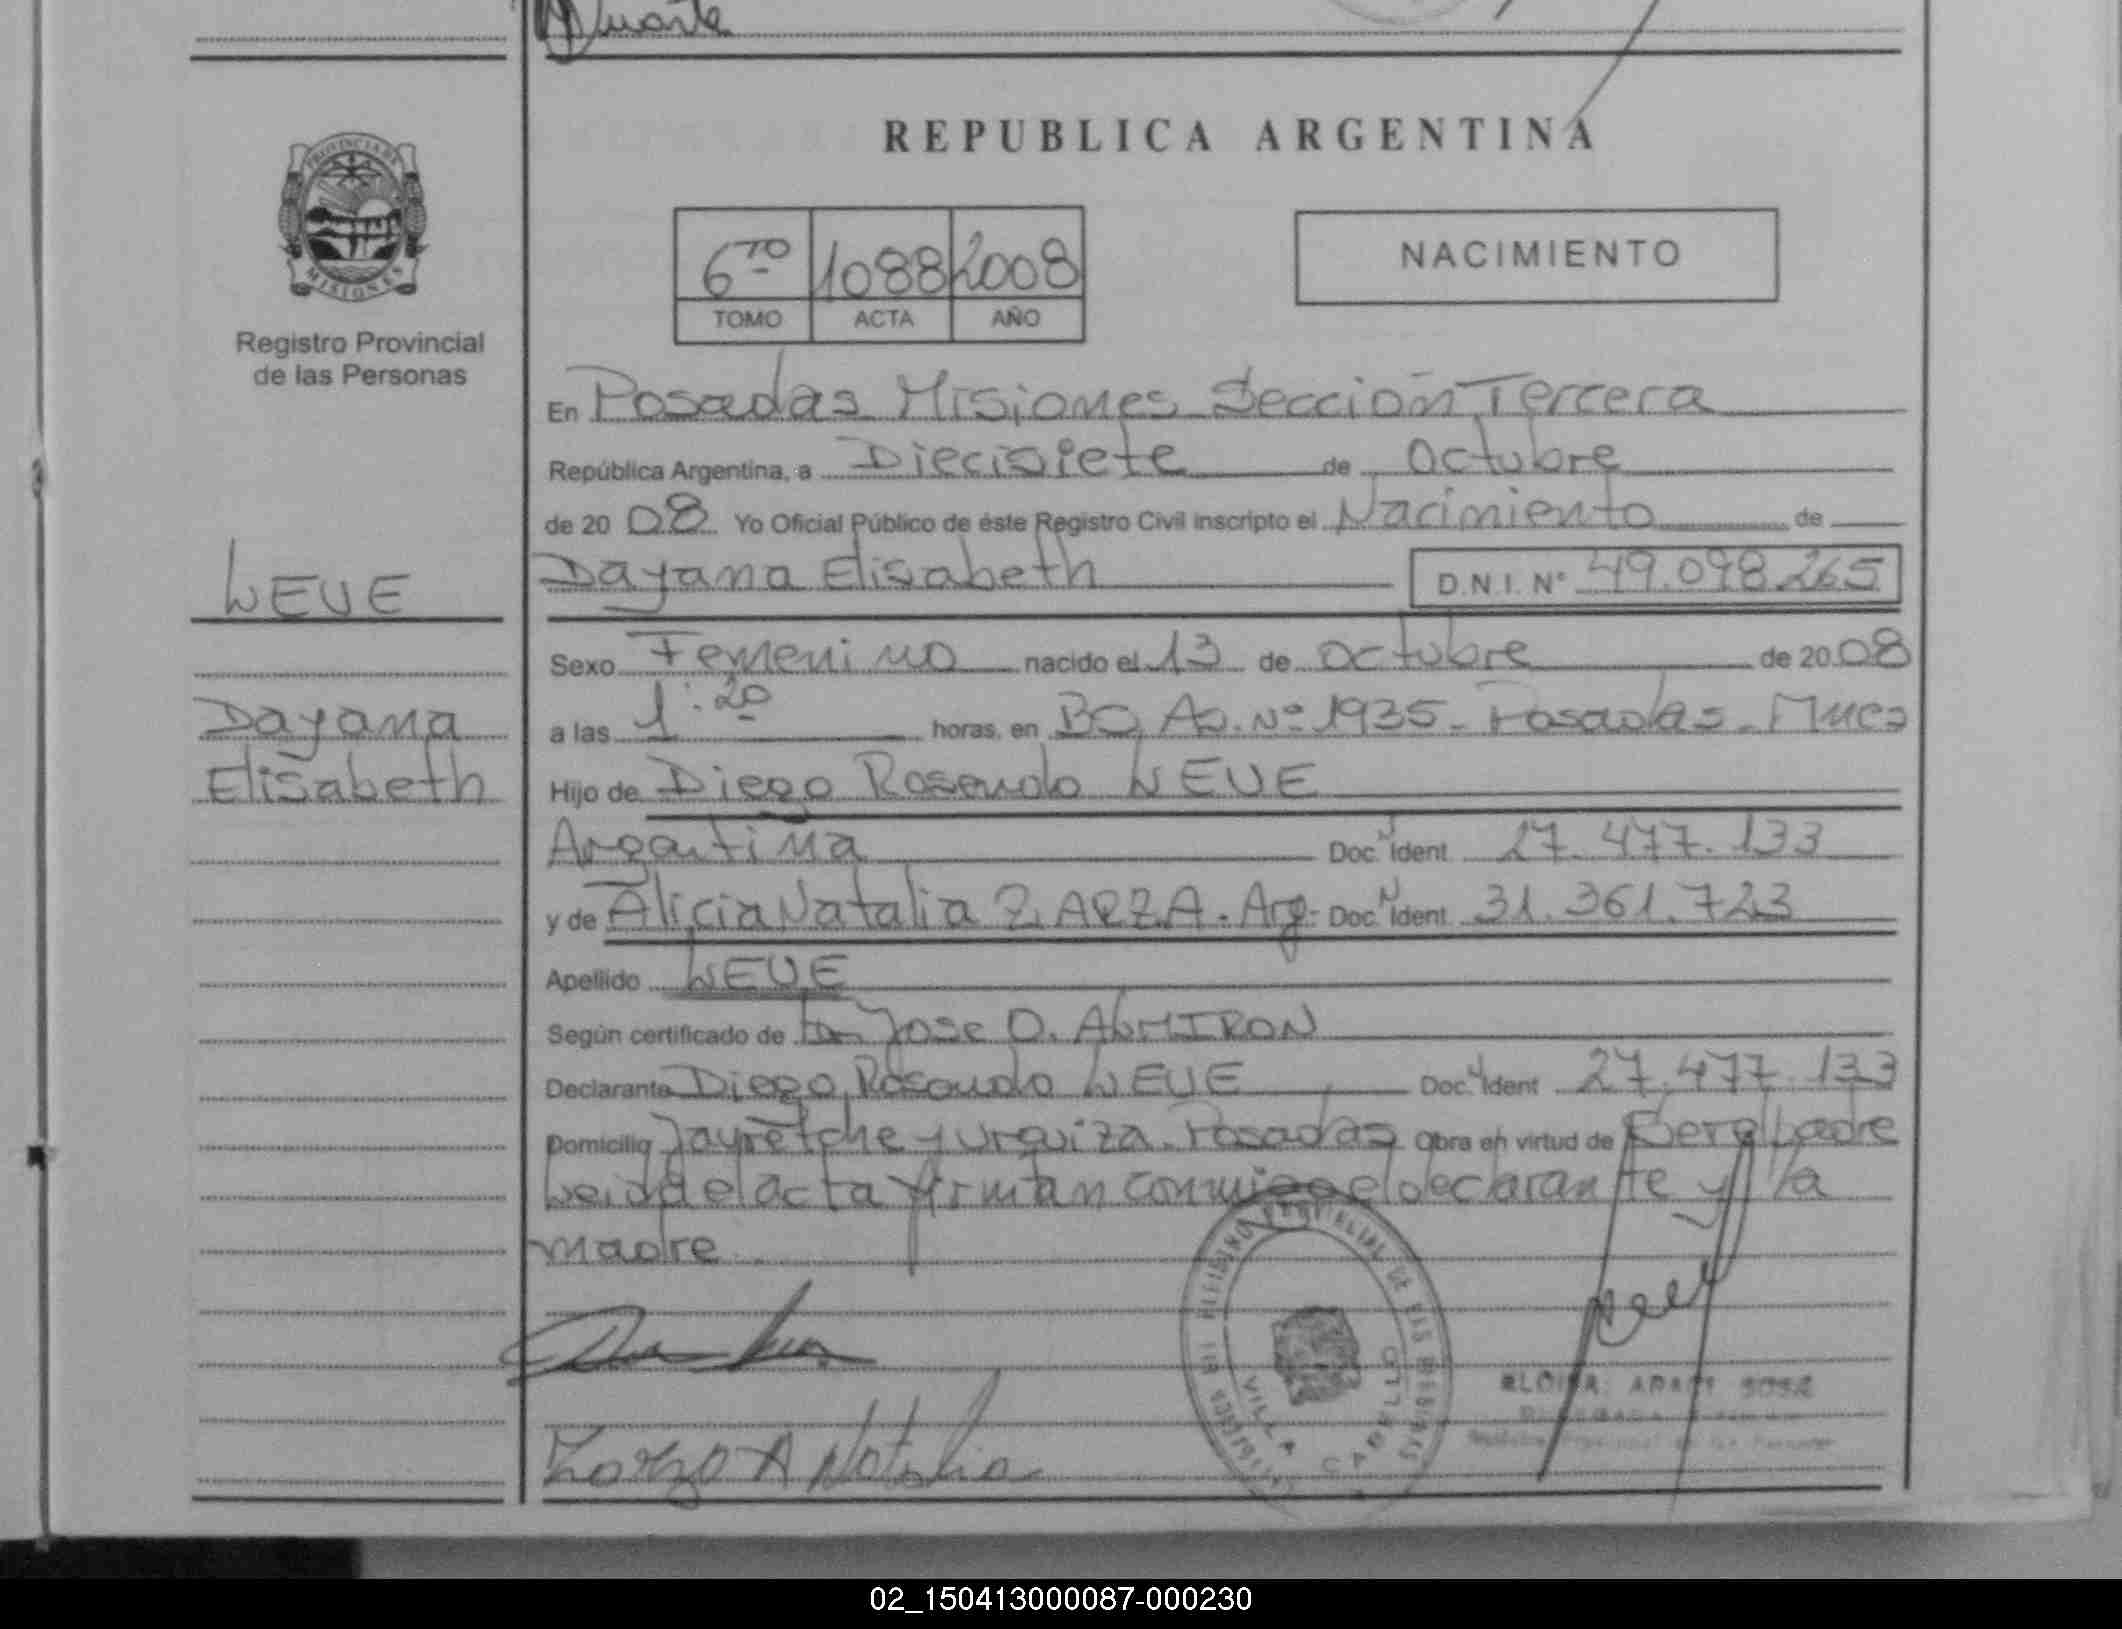 Duarte
REPUBLICA ARGENTINA
PROVINCIA DE
MISIONES
Registro Provincial
de las Personas
6TO 1088 2008
TOMO ACTA AÑO
NACIMIENTO
En Posadas Misiones Sección Tercera
República Argentina, a Diecisiete de Octubre
de 2008 Yo Oficial Público de éste Registro Civil inscripto el Nacimiento de
LEUE
Dayana Elisabeth D.N.I. Nº 49.098.265
Sexo Femenino nacido el 13 de octubre de 2008
Dayana
Elisabeth
a las 1:20 horas, en BS. As. Nº 1935 - Posadas - Mnes
Hijo de Diego Rosendo LEUE
Argentina Doc. N Ident. 27.477.133
y de Alicia Natalia ZARZA. Arg. Doc. N Ident. 31.361.723
Apellido LEUE
Según certificado de Jose O. ALMIRON
Declarante Diego Rosendo LEUE Doc. N Ident 27.477.133
Domicilio Jauretche y Urquiza. Posadas Obra en virtud de Ser el padre
Leida el acta firman conmigo el declarante y la
madre
Zarza A Natalia
VILLA CABELLO